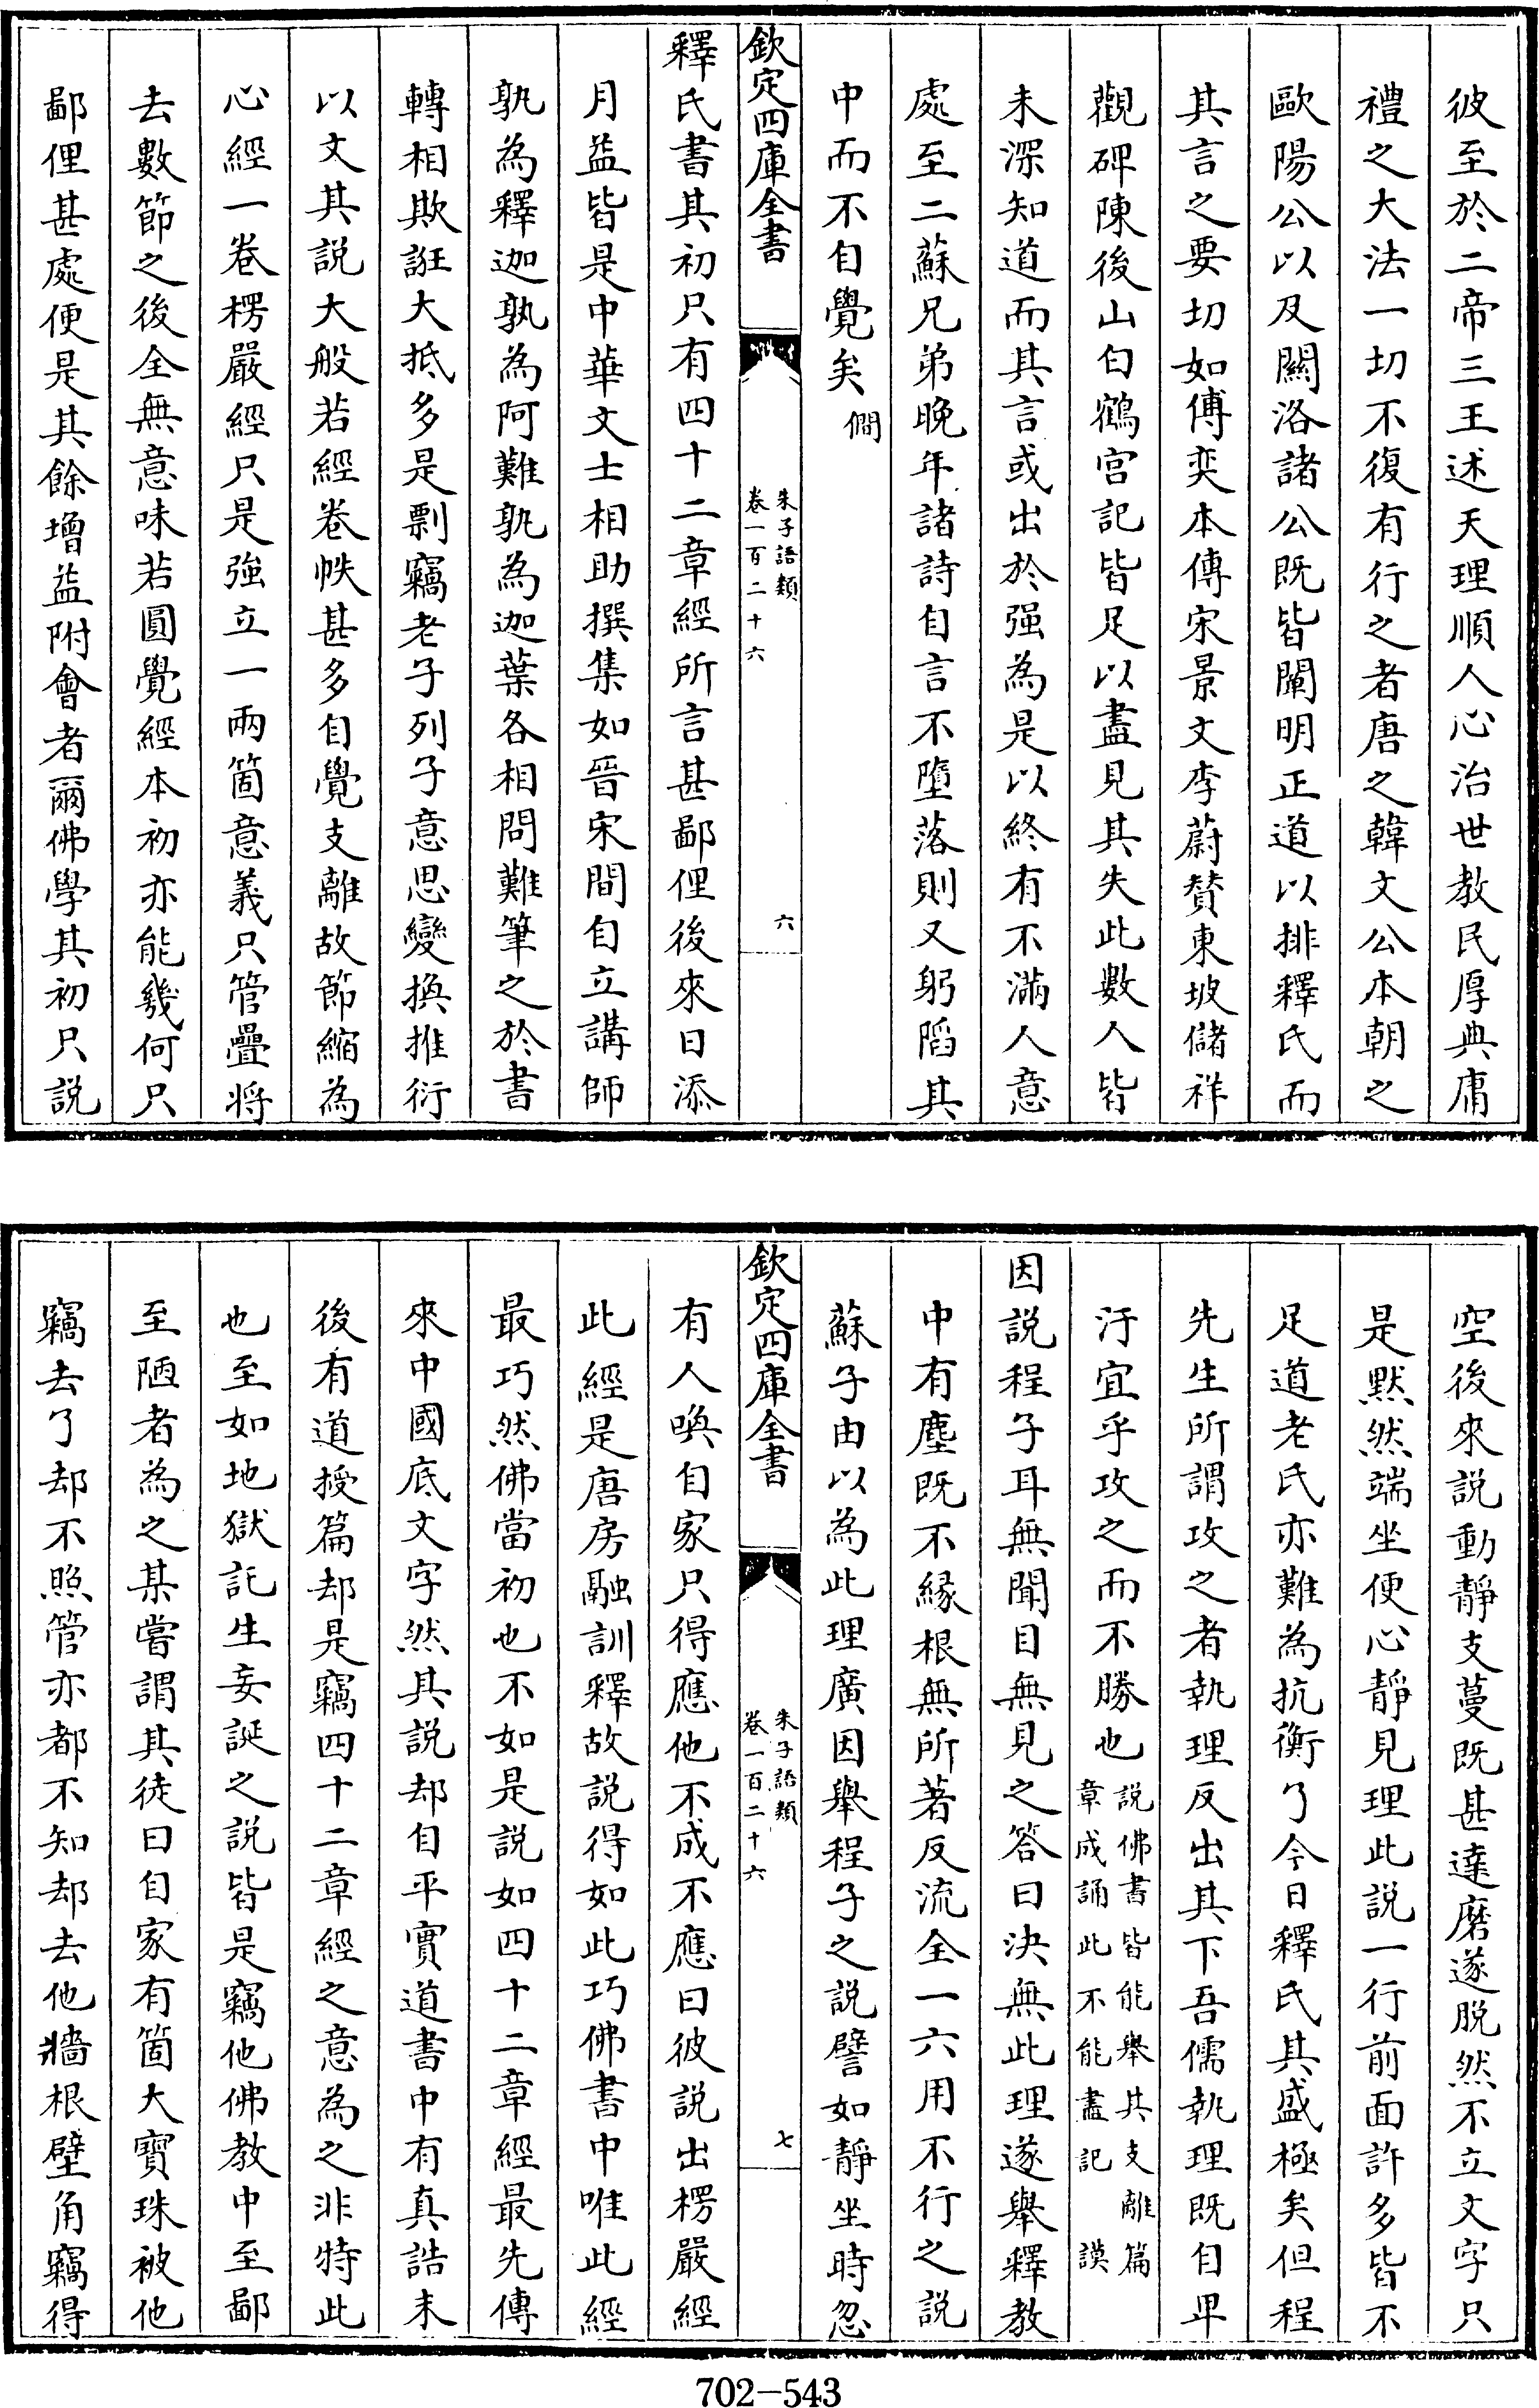 彼至於二帝三王述天理順人心治世教民厚典庸
禮之大法一切不復有行之者唐之韓文公本朝之
歐陽公以及闗洛諸公既皆闡明正道以排釋氏而
其言之要切如傅奕本傳宋景文李蔚贊東坡儲祥
觀碑陳後山白鶴宫記皆足以盡見其失此數人皆
未深知道而其言或出於强為是以終有不滿人意
處至二蘇兄弟晚年諸詩自言不墮落則又躬陷其
中而不自覺矣 僩
欽定四庫全書
朱子語類
卷一百二十六
六
釋氏書其初只有四十二章經所言甚鄙俚後來日添
月益皆是中華文士相助撰集如晉宋間自立講師
孰為釋迦孰為阿難孰為迦葉各相問難筆之於書
轉相欺誑大抵多是剽竊老子列子意思變換推衍
以文其説大般若經卷帙甚多自覺支離故節縮為
心經一卷楞嚴經只是強立一兩箇意義只管疊將
去數節之後全無意味若圓覺經本初亦能幾何只
鄙俚甚處便是其餘增益附會者爾佛學其初只説
空後來説動靜支蔓既甚達磨遂脱然不立文字只
是默然端坐便心靜見理此説一行前面許多皆不
足道老氏亦難為抗衡了今日釋氏其盛極矣但程
先生所謂攻之者執理反出其下吾儒執理既自卑
汙宜乎攻之而不勝也 説佛書皆能舉其支離篇
章成誦此不能盡記 謨
因説程子耳無聞目無見之答曰決無此理遂舉釋教
中有塵既不縁根無所著反流全一六用不行之説
蘇子由以為此理廣因舉程子之説譬如靜坐時忽
欽定四庫全書
朱子語類
卷一百二十六
七
有人喚自家只得應他不成不應曰彼説出楞嚴經
此經是唐房融訓釋故説得如此巧佛書中唯此經
最巧然佛當初也不如是説如四十二章經最先傳
來中國底文字然其説却自平實道書中有真誥末
後有道授篇却是竊四十二章經之意為之非特此
也至如地獄託生妄誕之説皆是竊他佛教中至鄙
至陋者為之某嘗謂其徒曰自家有箇大寳珠被他
竊去了却不照管亦都不知却去他牆根壁角竊得
702-543